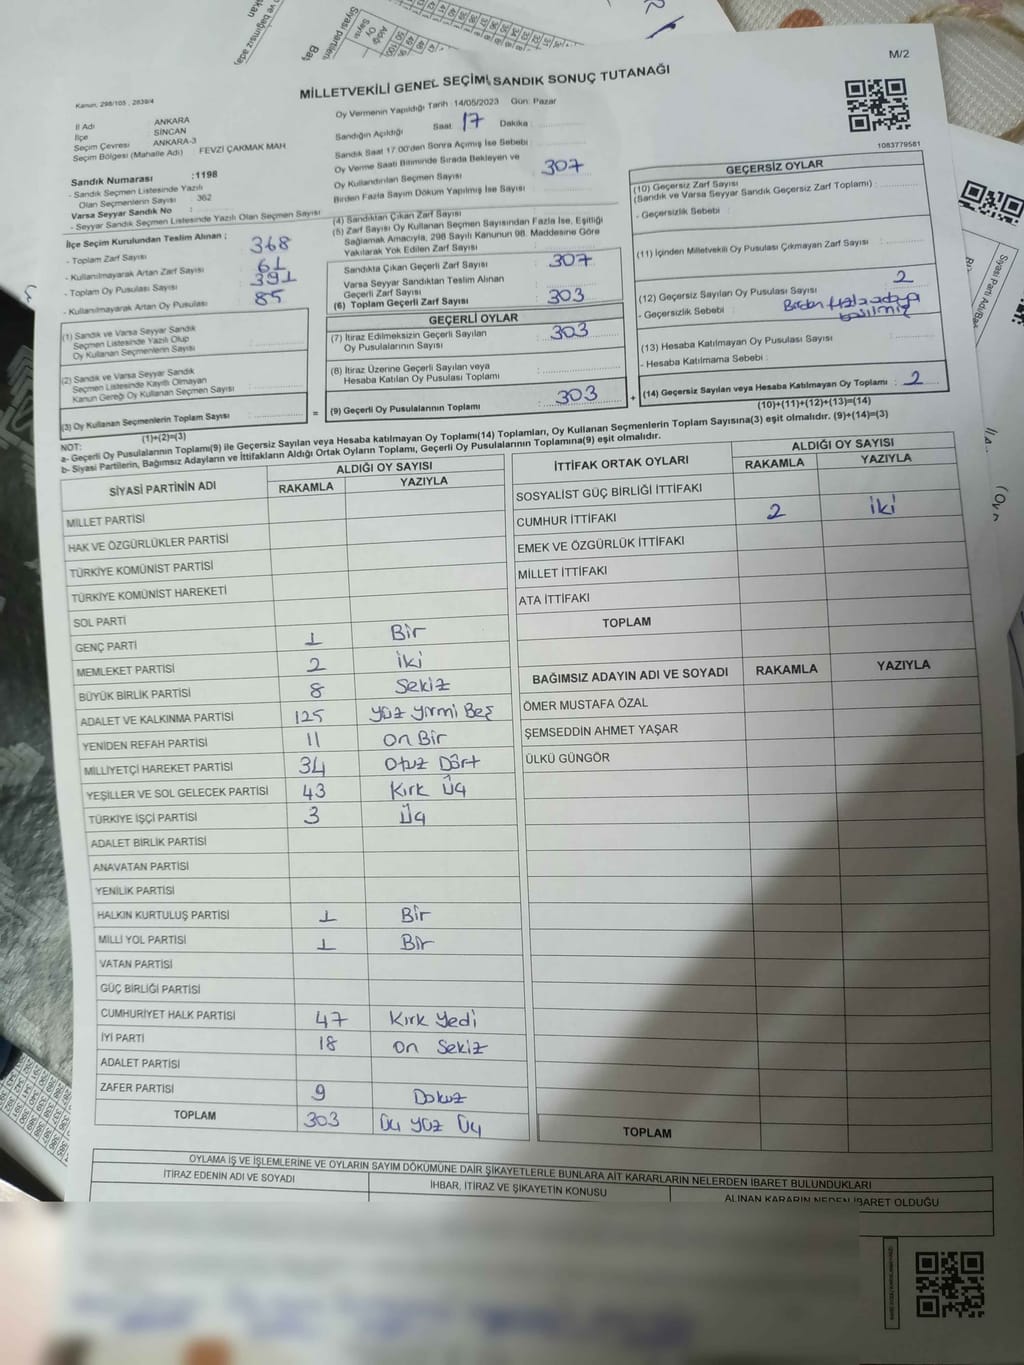 M/2
MİLLETVEKİLİ GENEL SEÇİMİ SANDIK SONUÇ TUTANAĞI
Kanun, 298/105 , 2839/4
İl Adı ANKARA
İlçe SİNCAN
Seçim Çevresi ANKARA-3
Seçim Bölgesi (Mahalle Adı) : FEVZİ ÇAKMAK MAH
Sandık Numarası :1198
- Sandık Seçmen Listesinde Yazılı
Olan Seçmenlerin Sayısı : 362
Varsa Seyyar Sandık No :
- Seyyar Sandık Seçmen Listesinde Yazılı Olan Seçmen Sayısı
İlçe Seçim Kurulundan Teslim Alınan ;
- Toplam Zarf Sayısı 368
- Kullanılmayarak Artan Zarf Sayısı 61
- Toplam Oy Pusulası Sayısı 391
- Kullanılmayarak Artan Oy Pusulası 85
(1) Sandık ve Varsa Seyyar Sandık
Seçmen Listesinde Yazılı Olup
Oy Kullanan Seçmenlerin Sayısı
(2) Sandık ve Varsa Seyyar Sandık
Seçmen Listesinde Kayıtlı Olmayan
Kanun Gereği Oy Kullanan Seçmen Sayısı
(3) Oy Kullanan Seçmenlerin Toplam Sayısı =
(1)+(2)=(3)
Oy Vermenin Yapıldığı Tarih :14/05/2023 Gün: Pazar
Sandığın Açıldığı Saat: 17 Dakika:
Sandık Saat 17:00'den Sonra Açmış İse Sebebi :
Oy Verme Saati Bitiminde Sırada Bekleyen ve
Oy Kullandırılan Seçmen Sayısı 307
Birden Fazla Sayım Döküm Yapılmış İse Sayısı
(4) Sandıktan Çıkan Zarf Sayısı :
(5) Zarf Sayısı Oy Kullanan Seçmen Sayısından Fazla İse, Eşitliği
Sağlamak Amacıyla, 298 Sayılı Kanunun 98. Maddesine Göre
Yakılarak Yok Edilen Zarf Sayısı :
Sandıkta Çıkan Geçerli Zarf Sayısı 307
Varsa Seyyar Sandıktan Teslim Alınan
Geçerli Zarf Sayısı
(6) Toplam Geçerli Zarf Sayısı 303
GEÇERLİ OYLAR
(7) İtiraz Edilmeksizin Geçerli Sayılan
Oy Pusulalarının Sayısı : 303
(8) İtiraz Üzerine Geçerli Sayılan veya
Hesaba Katılan Oy Pusulası Toplamı
(9) Geçerli Oy Pusulalarının Toplamı : 303 +
1083779581
GEÇERSİZ OYLAR
(10) Geçersiz Zarf Sayısı
(Sandık ve Varsa Seyyar Sandık Geçersiz Zarf Toplamı) :
- Geçersizlik Sebebi :
(11) İçinden Milletvekili Oy Pusulası Çıkmayan Zarf Sayısı :
(12) Geçersiz Sayılan Oy Pusulası Sayısı : 2
- Geçersizlik Sebebi : Birden fazla adaya
basılmış
(13) Hesaba Katılmayan Oy Pusulası Sayısı :
- Hesaba Katılmama Sebebi :
(14) Geçersiz Sayılan veya Hesaba Katılmayan Oy Toplamı : 2
(10)+(11)+(12)+(13)=(14)
NOT:
a- Geçerli Oy Pusulalarının Toplamı(9) ile Geçersiz Sayılan veya Hesaba katılmayan Oy Toplamı(14) Toplamları, Oy Kullanan Seçmenlerin Toplam Sayısına(3) eşit olmalıdır. (9)+(14)=(3)
b- Siyasi Partilerin, Bağımsız Adayların ve İttifakların Aldığı Ortak Oyların Toplamı, Geçerli Oy Pusulalarının Toplamına(9) eşit olmalıdır.
SİYASİ PARTİNİN ADI ALDIĞI OY SAYISI
RAKAMLA YAZIYLA
MİLLET PARTİSİ
HAK VE ÖZGÜRLÜKLER PARTİSİ
TÜRKİYE KOMÜNİST PARTİSİ
TÜRKİYE KOMÜNİST HAREKETİ
SOL PARTİ
GENÇ PARTİ 1 Bir
MEMLEKET PARTİSİ 2 iki
BÜYÜK BİRLİK PARTİSİ 8 Sekiz
ADALET VE KALKINMA PARTİSİ 125 yüz yirmi Beş
YENİDEN REFAH PARTİSİ 11 on Bir
MİLLİYETÇİ HAREKET PARTİSİ 34 Otuz Dört
YEŞİLLER VE SOL GELECEK PARTİSİ 43 Kırk Üç
TÜRKİYE İŞÇİ PARTİSİ 3 Üç
ADALET BİRLİK PARTİSİ
ANAVATAN PARTİSİ
YENİLİK PARTİSİ
HALKIN KURTULUŞ PARTİSİ 1 Bir
MİLLİ YOL PARTİSİ 1 Bir
VATAN PARTİSİ
GÜÇ BİRLİĞİ PARTİSİ
CUMHURİYET HALK PARTİSİ 47 Kırk Yedi
İYİ PARTİ 18 on Sekiz
ADALET PARTİSİ
ZAFER PARTİSİ 9 Dokuz
TOPLAM 303 Üç yüz Üç
İTTİFAK ORTAK OYLARI ALDIĞI OY SAYISI
RAKAMLA YAZIYLA
SOSYALİST GÜÇ BİRLİĞİ İTTİFAKI
CUMHUR İTTİFAKI 2 iki
EMEK VE ÖZGÜRLÜK İTTİFAKI
MİLLET İTTİFAKI
ATA İTTİFAKI
TOPLAM
BAĞIMSIZ ADAYIN ADI VE SOYADI RAKAMLA YAZIYLA
ÖMER MUSTAFA ÖZAL
ŞEMSEDDİN AHMET YAŞAR
ÜLKÜ GÜNGÖR
TOPLAM
OYLAMA İŞ VE İŞLEMLERİNE VE OYLARIN SAYIM DÖKÜMÜNE DAİR ŞİKAYETLERLE BUNLARA AİT KARARLARIN NELERDEN İBARET BULUNDUKLARI
İTİRAZ EDENİN ADI VE SOYADI İHBAR, İTİRAZ VE ŞİKAYETİN KONUSU ALINAN KARARIN NEDEN İBARET OLDUĞU